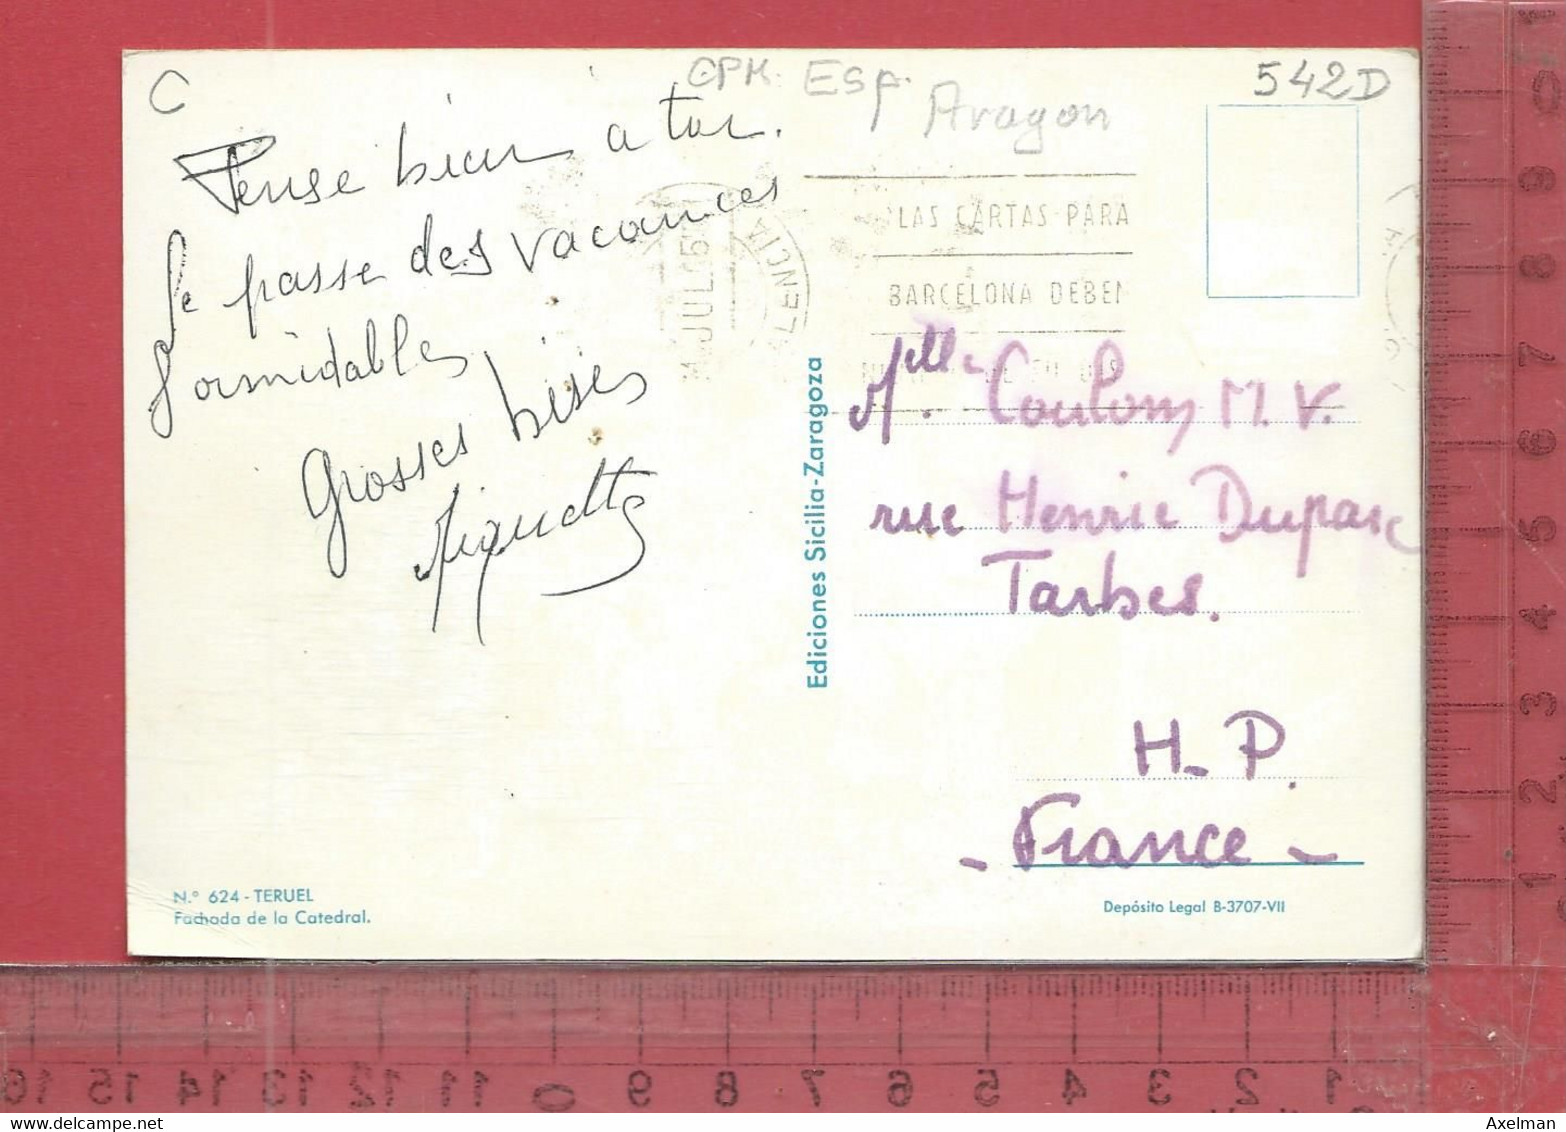 C
CPM ESP.
Aragon
542D
Pense bien à toi.
Je passe des vacances
formidables
Grosses bises
LAS CARTAS PARA
BARCELONA DEBEN
JUL
Ediciones Sicilia-Zaragoza
Mlle Coulom M. V.
rue Henrie Duparc
Tarbes.
H. P.
- France -
N.º 624 - TERUEL
Fachada de la Catedral.
Depósito Legal B-3707-VII
0
1
2
3
4
5
6
7
8
9
16 15 14 13 12 11 0 9 8 7 6 5 4 3 2 1
www.delcampe.net
Axelman